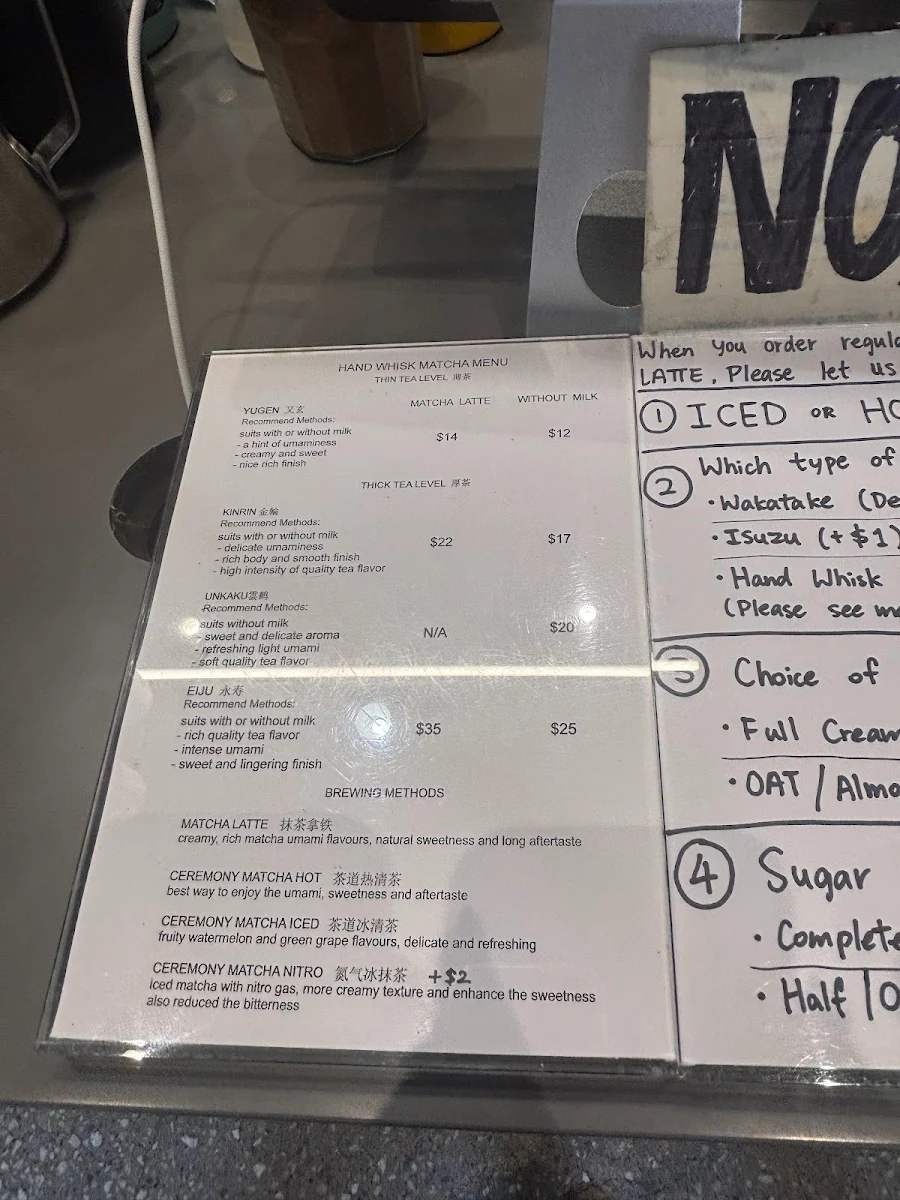 HAND WHISK MATCHA MENU
THIN TEA LEVEL 薄茶
MATCHA LATTE WITHOUT MILK
YUGEN 又玄
Recommend Methods:
suits with or without milk $14 $12
- a hint of umaminess
- creamy and sweet
- nice rich finish
THICK TEA LEVEL 厚茶
KINRIN 金輪
Recommend Methods:
suits with or without milk $22 $17
- delicate umaminess
- rich body and smooth finish
- high intensity of quality tea flavor
UNKAKU雲鶴
Recommend Methods:
suits without milk N/A $20
- sweet and delicate aroma
- refreshing light umami
- soft quality tea flavor
EIJU 永寿
Recommend Methods:
suits with or without milk $35 $25
- rich quality tea flavor
- intense umami
- sweet and lingering finish
BREWING METHODS
MATCHA LATTE 抹茶拿铁
creamy, rich matcha umami flavours, natural sweetness and long aftertaste
CEREMONY MATCHA HOT 茶道热清茶
best way to enjoy the umami, sweetness and aftertaste
CEREMONY MATCHA ICED 茶道冰清茶
fruity watermelon and green grape flavours, delicate and refreshing
CEREMONY MATCHA NITRO 氮气冰抹茶 +$2
iced matcha with nitro gas, more creamy texture and enhance the sweetness
also reduced the bitterness
NO
When you order regul
LATTE. Please let us
① ICED OR HO
② Which type of
• Wakatake (De
• Isuzu (+$1)
• Hand Whisk
(Please see m
③ Choice of
• Full Cream
• OAT / Almo
④ Sugar
• Complete
• Half / O